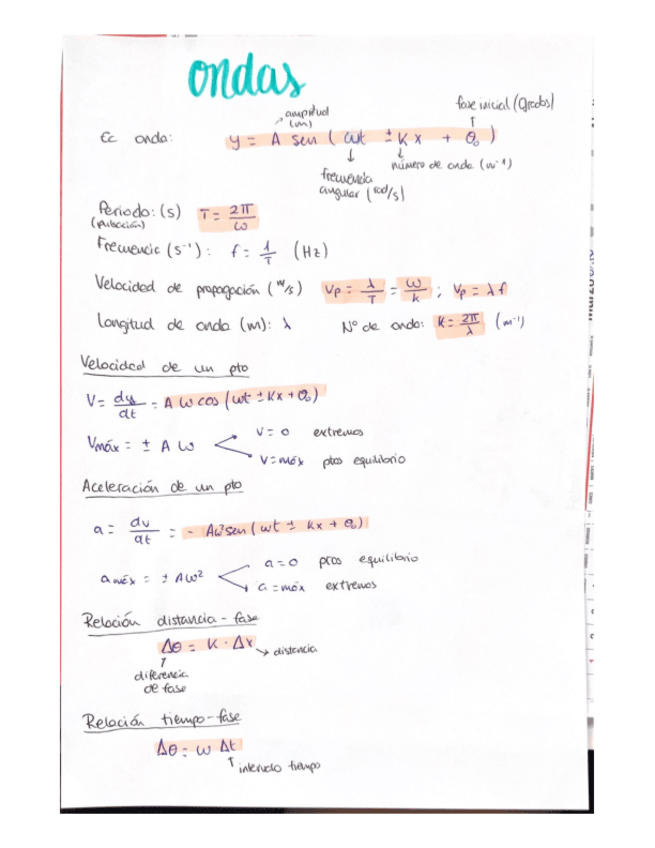 ondas
amplitud (m)
fase inicial (grados)
Ec onda: y = A sen ( ωt ± Kx + θ₀ )
frecuencia angular (rad/s)
número de onda (m⁻¹)
Periodo: (s) T = 2π/ω
(pulsación)
Frecuencia (s⁻¹): f = 1/T (Hz)
Velocidad de propagación (m/s) Vp = λ/T = ω/k ; Vp = λ f
Longitud de onda (m): λ Nº de onda: K = 2π/λ (m⁻¹)
Velocidad de un pto
V = dy/dt = A ω cos (ωt ± Kx + θ₀)
Vmáx = ± A ω
V = 0 extremos
V = máx ptos equilibrio
Aceleración de un pto
a = dv/dt = - Aω² sen ( ωt ± kx + θ₀ )
a máx = ± Aω²
a = 0 ptos equilibrio
a = máx extremos
Relación distancia - fase
Δθ = K · Δx → distancia
diferencia de fase
Relación tiempo - fase
Δθ = ω Δt
intervalo tiempo